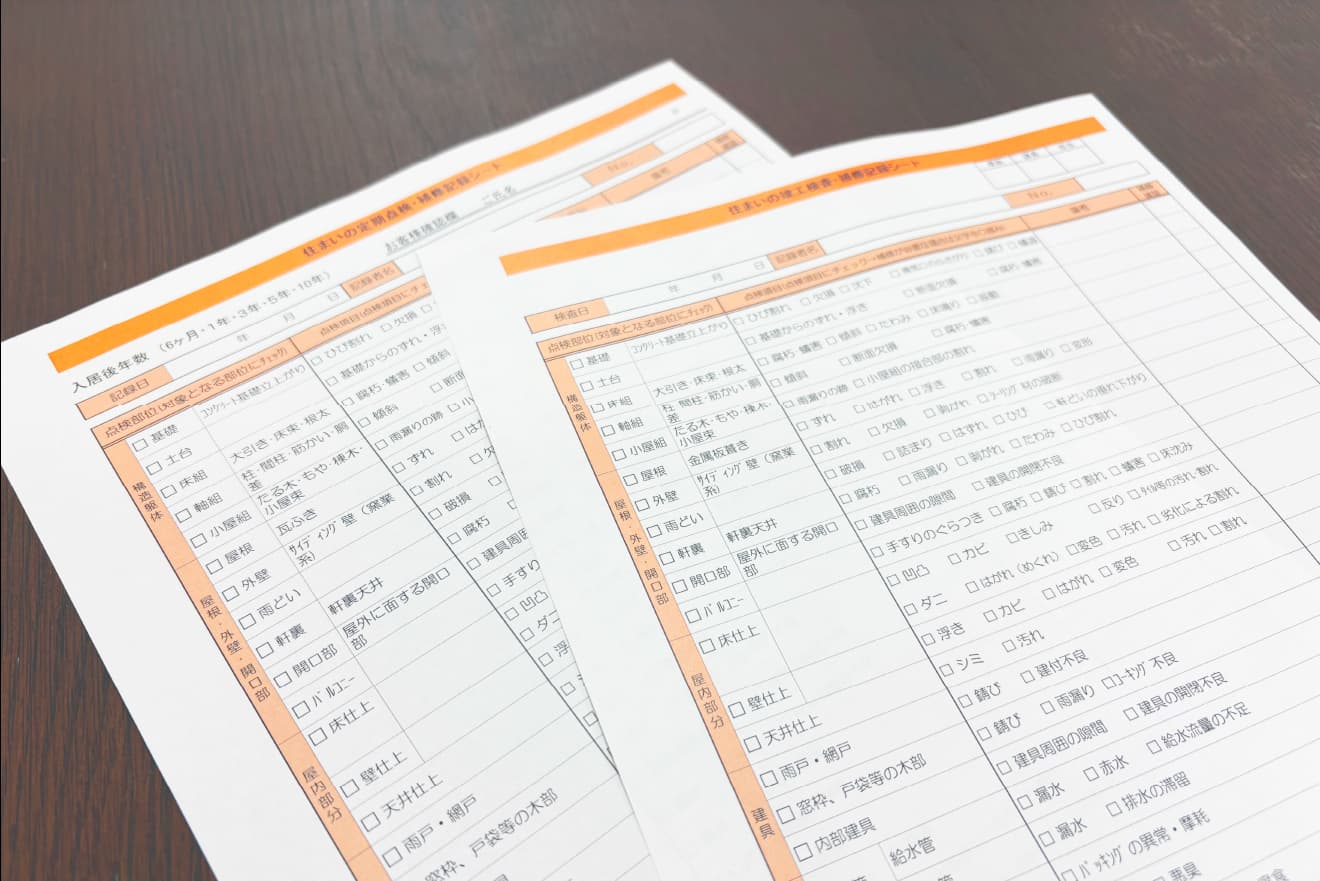 住まいの定期点検・補修記録シート
お客様確認欄 ご氏名
入居後年数 (6ヶ月・1年・3年・5年・10年)
No.
記録日 年 月 日 記録者名
備考
点検部位(対象となる部位にチェック) 点検項目(点検項目にチェ
構造躯体
□ 基礎 コンクリート基礎立上がり □ ひび割れ □ 欠損
□ 土台 □ 基礎からのずれ・浮
□ 床組 大引き・床束・根太 □ 腐朽・蟻害 □ 傾斜
□ 軸組 柱・間柱・筋かい・胴差 □ 傾斜 □ 断面
□ 小屋組 たる木・もや・棟木・小屋束 □ 雨漏りの跡 □ 小
屋根・外壁・開口部
□ 屋根 瓦ぶき □ ずれ □ はが
□ 外壁 サイディング 壁(窯業系) □ 割れ □ 欠
□ 雨どい □ 破損
□ 軒裏 軒裏天井 □ 腐朽
□ 開口部 屋外に面する開口部 □ 建具周囲
□ バルコニー □ 手すり
屋内部分
□ 床仕上 □ 凹凸
□ ダニ
□ 壁仕上 □ 浮
□ 天井仕上
□ 雨戸・網戸
□ 窓枠、戸袋等の木部
住まいの竣工検査・補修記録シート
No.
検査日 年 月 日 記録者名
備考
点検部位(対象となる部位にチェック)
構造躯体
□ 基礎 コンクリート基礎立上がり □ ひび割れ □ 欠損 □ 沈下 □ 錆び □ 蟻道
□ 土台 □ 基礎からのずれ・浮き □ 断面欠損 □ 腐朽・蟻害
□ 床組 大引き・床束・根太 □ 腐朽・蟻害 □ 傾斜 □ たわみ □ 床鳴り □ 振動
□ 軸組 柱・間柱・筋かい・胴差 □ 傾斜 □ 断面欠損 □ 腐朽・蟻害
□ 小屋組 たる木・もや・棟木・小屋束 □ 雨漏りの跡 □ 小屋組の接合部の割れ
屋根・外壁・開口部
□ 屋根 金属板葺き □ ずれ □ はがれ □ 浮き □ 割れ □ 雨漏り □ 変形
□ 外壁 サイディング 壁(窯業系) □ 割れ □ 欠損 □ 剥がれ □ シーリング材の破断
□ 雨どい □ 破損 □ 詰まり □ はずれ □ ひび □ 軒どいの垂れ下がり
□ 軒裏 軒裏天井 □ 腐朽 □ 雨漏り □ 剥がれ □ たわみ □ ひび割れ
□ 開口部 屋外に面する開口部 □ 建具周囲の隙間 □ 建具の開閉不良
□ バルコニー □ 手すりのぐらつき □ 腐朽 □ 錆び □ 割れ □ 蟻害 □ 床沈み
屋内部分
□ 床仕上 □ 凹凸 □ カビ □ きしみ □ 反り □ タイル等の汚れ・割れ
□ ダニ □ はがれ(めくれ) □ 変色 □ 汚れ □ 劣化による割れ
□ 壁仕上 □ 浮き □ カビ □ はがれ □ 変色 □ 汚れ □ 割れ
□ 天井仕上 □ シミ □ 汚れ
建具
□ 雨戸・網戸 □ 錆び □ 建付不良
□ 窓枠、戸袋等の木部 □ 錆び □ 雨漏り □ コーキング 不良
□ 内部建具 □ 建具周囲の隙間 □ 建具の開閉不良
給水管 □ 漏水 □ 赤水 □ 給水流量の不足
□ 漏水 □ 排水の滞留
□ パッキング の異常・摩耗
□ 悪臭